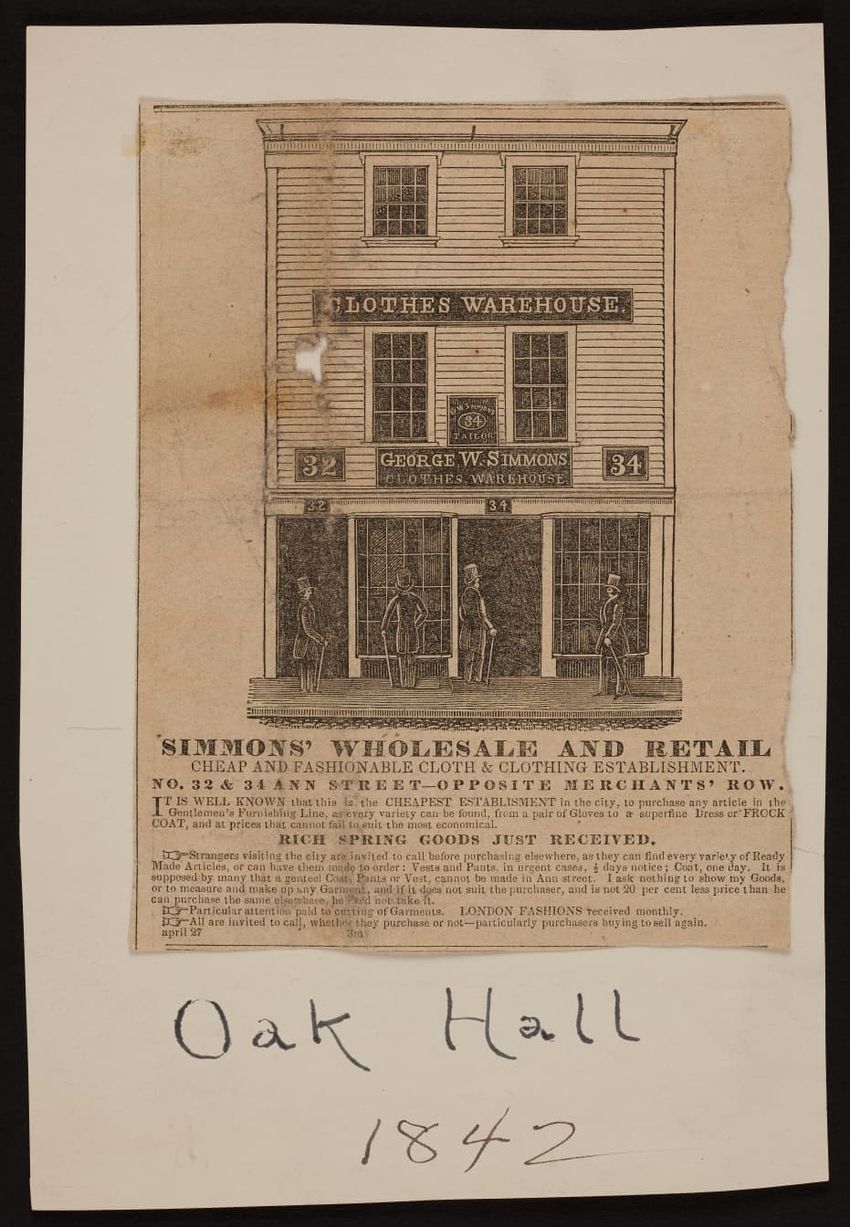 CLOTHES WAREHOUSE.
G.W. SIMMONS
34
TAILOR
32
GEORGE W. SIMMONS
CLOTHES. WAREHOUSE
34
32
34
SIMMONS' WHOLESALE AND RETAIL
CHEAP AND FASHIONABLE CLOTH & CLOTHING ESTABLISHMENT.
NO. 32 & 34 ANN STREET—OPPOSITE MERCHANTS' ROW.
IT IS WELL KNOWN that this is the CHEAPEST ESTABLISMENT in the city, to purchase any article in the
Gentlemen's Furnishing Line, as every variety can be found, from a pair of Gloves to a superfine Dress or FROCK
COAT, and at prices that cannot fail to suit the most economical.
RICH SPRING GOODS JUST RECEIVED.
☞Strangers visiting the city are invited to call before purchasing elsewhere, as they can find every variety of Ready
Made Articles, or can have them made to order: Vests and Pants, in urgent cases, ½ days notice; Coat, one day. It is
supposed by many that a genteel Coat, Pants or Vest, cannot be made in Ann street. I ask nothing to show my Goods,
or to measure and make up any Garment, and if it does not suit the purchaser, and is not 20 per cent less price than he
can purchase the same elsewhere, he need not take it.
☞Particular attention paid to cutting of Garments. LONDON FASHIONS received monthly.
☞All are invited to call, whether they purchase or not—particularly purchasers buying to sell again.
april 27 3m
Oak Hall
1842